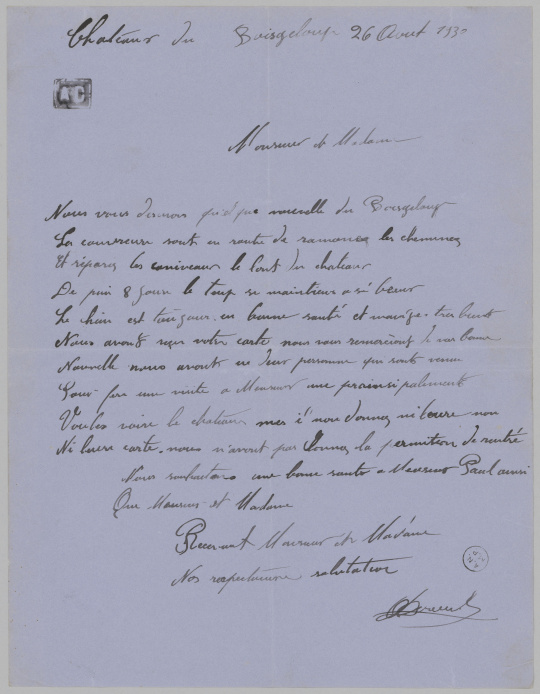 Chateaux du Boisgeloup 26 Aout 1930
AC
Monsieur et Madame
Nous vous disons nouvelle du Boisgeloup
Les couvreurs sont en route de ramonez les cheminez
Et réparez les caniveaux le tout du chateaux
De puis 8 Jours le temp se maintien a si beau
Le chien est toujours en bonne santé et mange tres bien
Nous avont reçu votre carte nous vous remercions de vos bonne
Nouvelle nous avont eu deux personne qui sont venue
Pour fere une visite a Monsieur
Voulez voire le chateaux mes i non donnez ni leure non
Ni leure carte. nous n'avont pas donnez la permition de rentré
Nous souhaitons une bonne santé a Monsieur Paul ainsi
Que Monsieur et Madame
Recevont Monsieur et Madame
Nos respectueuse salutation